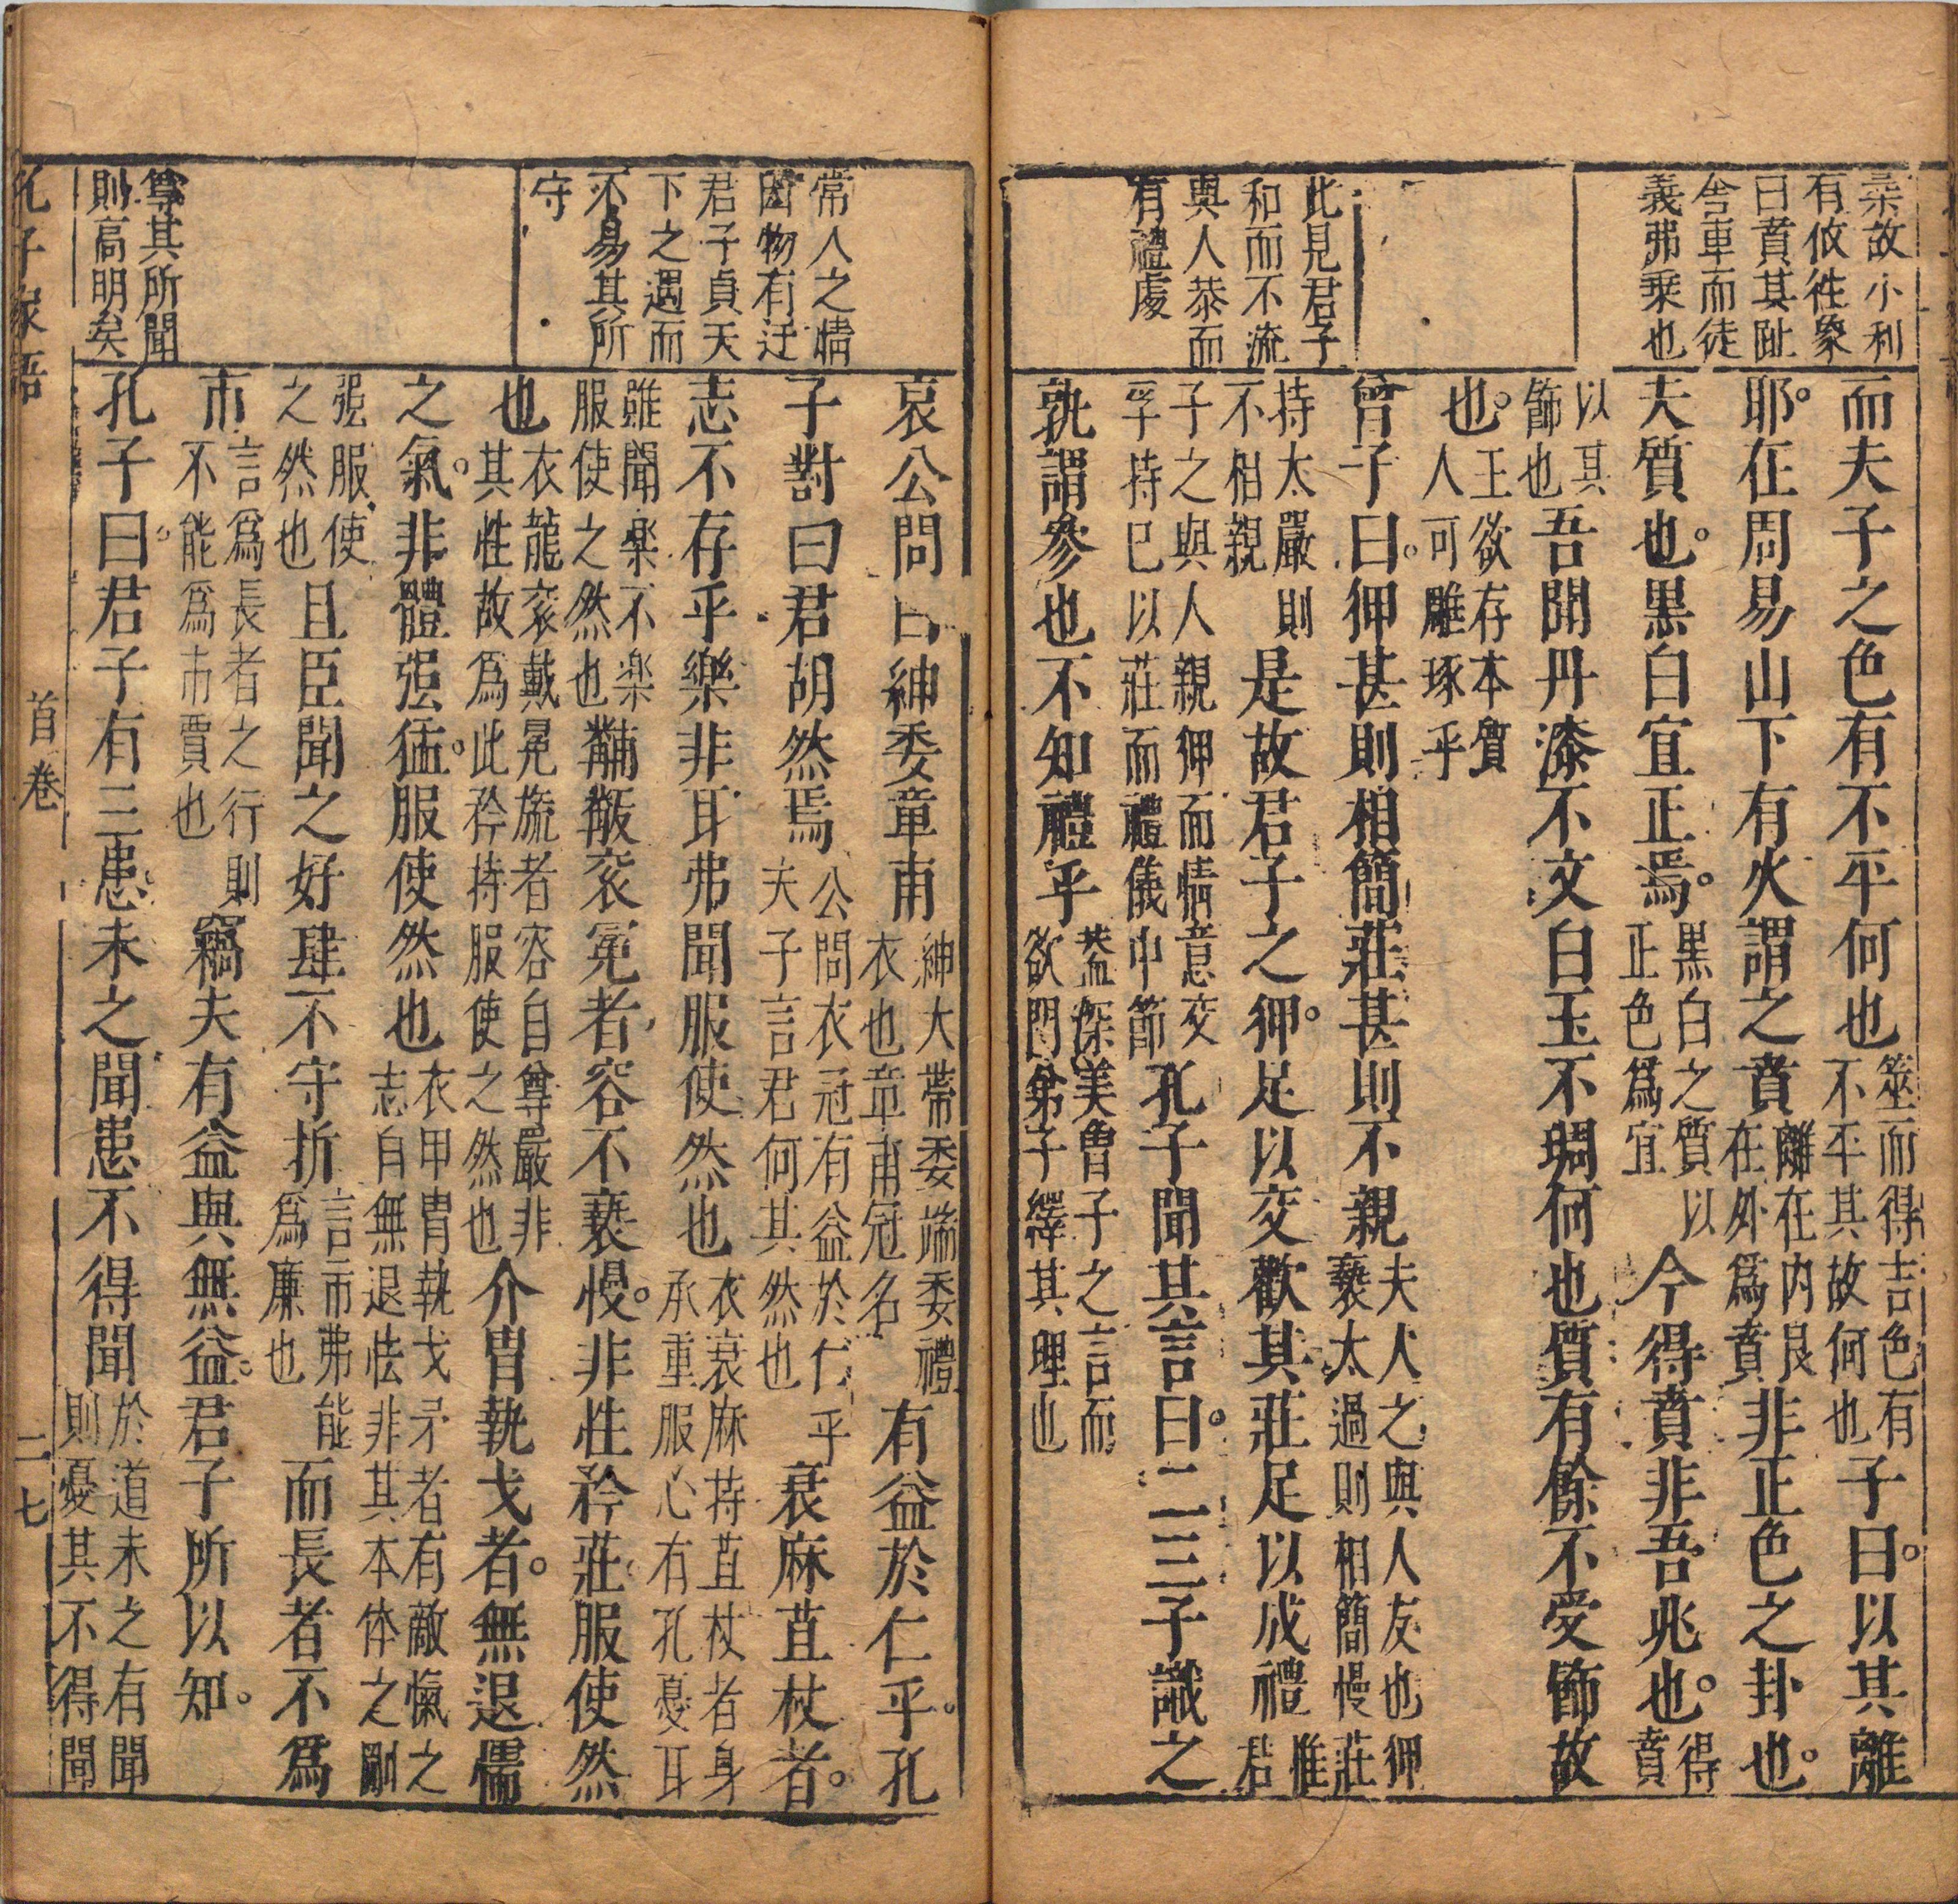 桒故小利
有攸徃象
曰賁其趾
舍車而徒
義弗乗也
此見君子
和而不流
與人恭而
有禮處
而夫子之色有不平何也筮而得吉色有不平其故何也子曰以其離
耶在周易山下有火謂之賁離在内艮在外爲賁非正色之卦也
夫質也黒白宜正焉黒白之質以正色爲宜今得賁非吾兆也得賁
以其飾也吾聞丹漆不文白玉不琱何也質有餘不受飾故
也王欲存本質人可雕琢乎
曾子曰狎甚則相簡莊甚則不親夫人之與人友也狎褻太過則相簡慢莊
持太嚴則不相親是故君子之狎足以交歡其莊足以成禮惟君
子之與人親狎而情意交孚持已以莊而禮儀中節孔子聞其言曰二三子識之
孰謂參也不知禮乎蓋深美曾子之言而欲門弟子繹其理也
常人之情
因物有迁
君子貞天
下之遇而
不易其所
守
尊其所聞
則高明矣
哀公問曰紳委章甫紳大帶委端委禮衣也章甫冠名有益於仁乎孔
子對曰君胡然焉公問衣冠有益於仁乎夫子言君何其然也衰麻苴杖者
志不存乎樂非耳弗聞服使然也衣衰麻持苴杖者身承重服心有孔憂耳
雖聞楽不楽服使之然也黼黻衮冕者容不褻慢非性矜莊服使然
也衣龍衮戴冕旒者容自尊嚴非其性故爲此矜持服使之然也介胄執戈者無退懦
之氣非體强猛服使然也衣甲胄執戈矛者有敵愾之志自無退怯非其本体之剛
强服使之然也且臣聞之好肆不守折言市弗能爲廉也而長者不爲
市言爲長者之行則不能爲市賈也竊夫有益與無益君子所以知
孔子曰君子有三患未之聞患不得聞於道未之有聞則憂其不得聞
孔子家語 首卷 二七